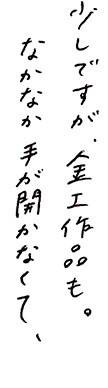 少しですが、金工作品も。
なかなか手が開かなくて、